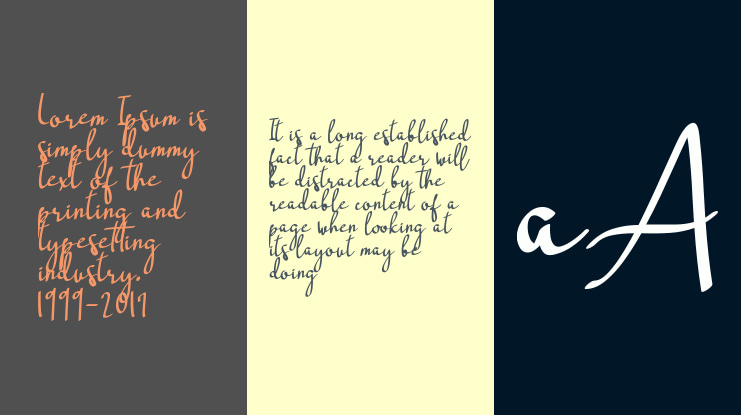 Lorem Ipsum is
simply dummy
text of the
printing and
typesetting
industry.
1999-2017
It is a long established
fact that a reader will
be distracted by the
readable content of a
page when looking at
its layout may be
doing
aA